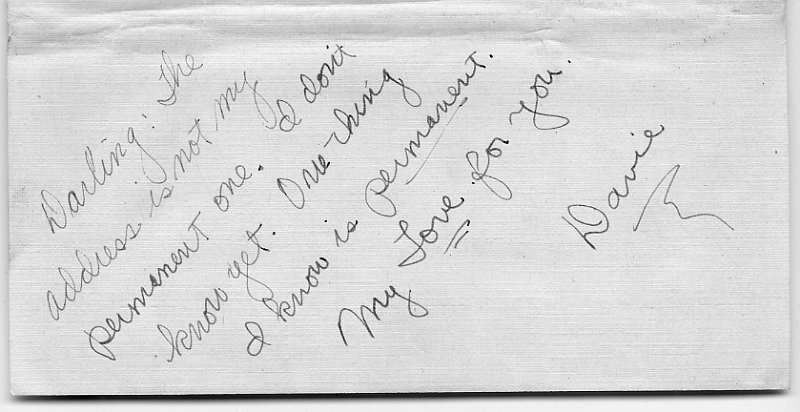 Darling: The
address is not my
permanent one. I don't
know yet. One thing
I know is permanent.
My Love for you.
Davie